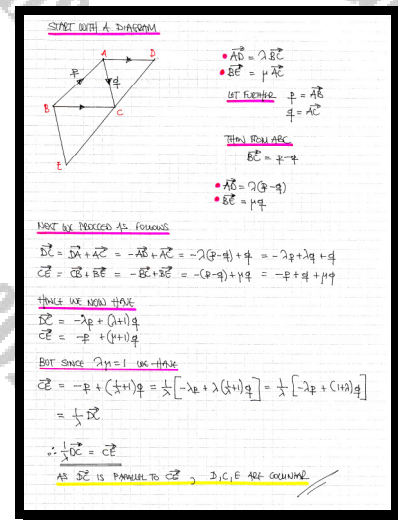 START WITH A DIAGRAM
A D
p q
B C
E
• AD = λ BC
• BE = μ AC
LET FURTHER p = AB
q = AC
THEN FROM ABC
BC = p - q
• AD = λ(p-q)
• BE = μq
NEXT WE PROCEED AS FOLLOWS
DC = DA + AC = -AD + AC = -λ(p-q) + q = -λp + λq + q
CE = CB + BE = -BC + BE = -(p-q) + μq = -p + q + μq
HENCE WE NOW HAVE
DC = -λp + (λ+1)q
CE = -p + (μ+1)q
BUT SINCE λμ=1 WE HAVE
CE = -p + (1/λ+1)q = 1/λ[-λp + λ(1/λ+1)q] = 1/λ[-λp + (1+λ)q]
= 1/λ DC
∴ 1/λ DC = CE
AS DC IS PARALLEL TO CE, D, C, E ARE COLLINEAR